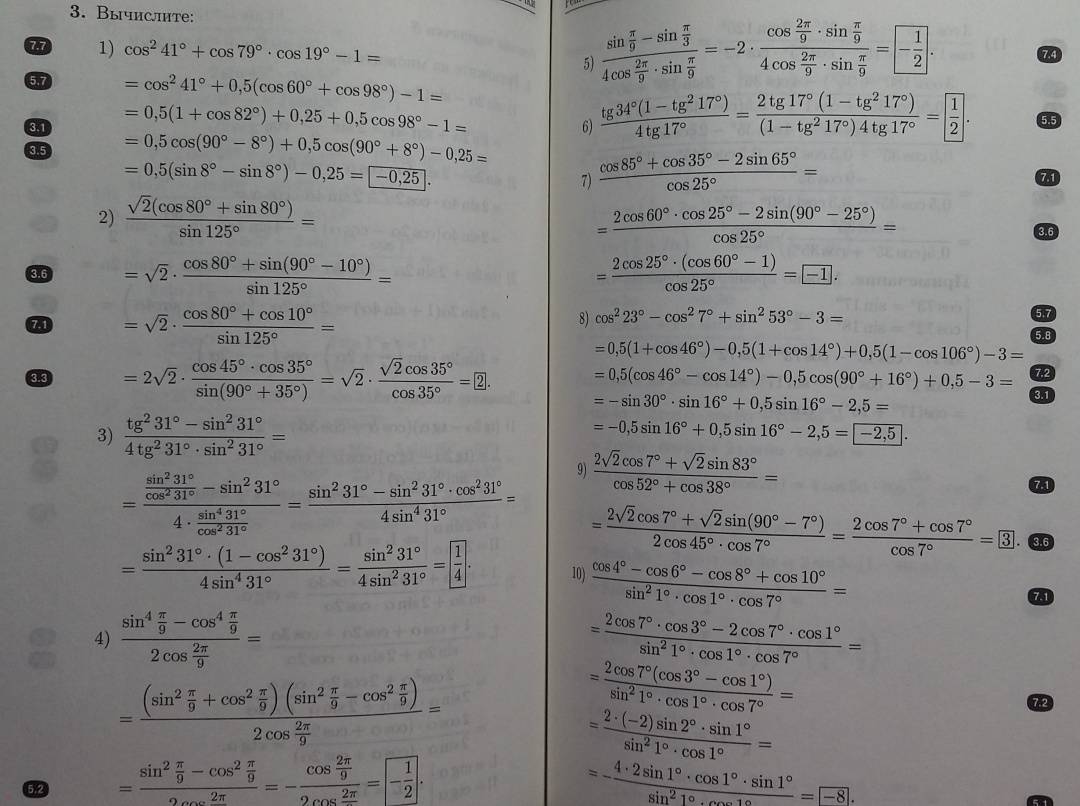 3. Вычислите:
7.7
1) cos² 41° + cos 79° · cos 19° − 1 =
5.7
= cos² 41° + 0,5(cos 60° + cos 98°) − 1 =
= 0,5(1 + cos 82°) + 0,25 + 0,5 cos 98° − 1 =
3.1
= 0,5 cos(90° − 8°) + 0,5 cos(90° + 8°) − 0,25 =
3.5
= 0,5(sin 8° − sin 8°) − 0,25 = −0,25.
2) √2(cos 80° + sin 80°) / sin 125° =
3.6
= √2 · (cos 80° + sin(90° − 10°)) / sin 125° =
7.1
= √2 · (cos 80° + cos 10°) / sin 125° =
3.3
= 2√2 · (cos 45° · cos 35°) / sin(90° + 35°) = √2 · (√2 cos 35°) / cos 35° = 2.
3) (tg² 31° − sin² 31°) / (4 tg² 31° · sin² 31°) =
= (sin² 31° / cos² 31° − sin² 31°) / (4 · sin⁴ 31° / cos² 31°) = (sin² 31° − sin² 31° · cos² 31°) / (4 sin⁴ 31°) =
= (sin² 31° · (1 − cos² 31°)) / (4 sin⁴ 31°) = sin² 31° / (4 sin² 31°) = 1/4.
4) (sin⁴ π/9 − cos⁴ π/9) / (2 cos 2π/9) =
= (sin² π/9 + cos² π/9) (sin² π/9 − cos² π/9) / (2 cos 2π/9) =
5.2
= (sin² π/9 − cos² π/9) / (2 cos 2π/9) = − (cos 2π/9) / (2 cos 2π/9) = −1/2.
5) (sin π/9 − sin π/3) / (4 cos 2π/9 · sin π/9) = −2 · (cos 2π/9 · sin π/9) / (4 cos 2π/9 · sin π/9) = −1/2.
7.4
6) (tg 34° (1 − tg² 17°)) / (4 tg 17°) = (2 tg 17° (1 − tg² 17°)) / ((1 − tg² 17°) 4 tg 17°) = 1/2.
5.5
7) (cos 85° + cos 35° − 2 sin 65°) / cos 25° =
7.1
= (2 cos 60° · cos 25° − 2 sin(90° − 25°)) / cos 25° =
3.6
= (2 cos 25° · (cos 60° − 1)) / cos 25° = −1.
8) cos² 23° − cos² 7° + sin² 53° − 3 =
5.7
5.8
= 0,5(1 + cos 46°) − 0,5(1 + cos 14°) + 0,5(1 − cos 106°) − 3 =
7.2
= 0,5(cos 46° − cos 14°) − 0,5 cos(90° + 16°) + 0,5 − 3 =
3.1
= − sin 30° · sin 16° + 0,5 sin 16° − 2,5 =
= −0,5 sin 16° + 0,5 sin 16° − 2,5 = −2,5.
9) (2√2 cos 7° + √2 sin 83°) / (cos 52° + cos 38°) =
7.1
= (2√2 cos 7° + √2 sin(90° − 7°)) / (2 cos 45° · cos 7°) = (2 cos 7° + cos 7°) / cos 7° = 3.
3.6
10) (cos 4° − cos 6° − cos 8° + cos 10°) / (sin² 1° · cos 1° · cos 7°) =
7.1
= (2 cos 7° · cos 3° − 2 cos 7° · cos 1°) / (sin² 1° · cos 1° · cos 7°) =
= (2 cos 7°(cos 3° − cos 1°)) / (sin² 1° · cos 1° · cos 7°) =
7.2
= (2 · (−2) sin 2° · sin 1°) / (sin² 1° · cos 1°) =
= − (4 · 2 sin 1° · cos 1° · sin 1°) / (sin² 1° · cos 1°) = −8.
5.1